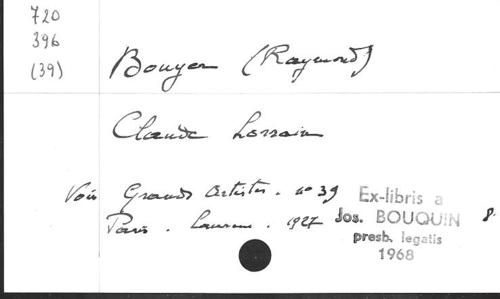 720
396
(39)
Bouyer (Raymond)
Claude Lorrain
Voir Grands Artistes. n° 39
Paris. Laurens. 1927
8.
Ex-libris a
Jos. BOUQUIN
presb. legatis
1968